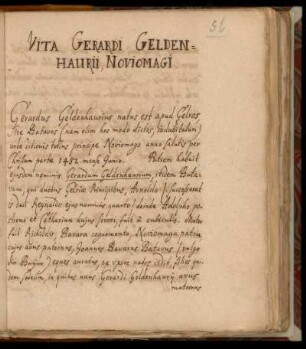 56
VITA GERARDI GELDEN=
HAURII, NOVIOMAGI
Gerardus Geldenhaurius natus est apud Gelros
sive Batavos (nam olim hoc modo dictos, indubitatum)
urbe civium totius principe Noviomago anno salutis per
Christum partæ 1482 mense Junio. Patrem habuit
ejusdem nominis Gerardum Geldenhaurium itidem Bata-
vum, qui duobus Gelriæ Principibus, Arnoldo (successerat
is sub Reginaldo ejus nominis quarto) deinde Adolpho, po-
et Catharinæ hujus sorori, fuit à Mater
fuit Mechildis, Bavara cognomento, Noviomaga patria
cujus avus paternus, Joannes Bavarus Batavus (vulgo
der ) eques auratus, ex uxore nobili
in quibus unus Gerardi Geldenhaurii avus
maternus